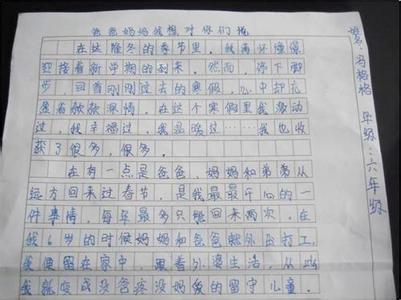 爸爸妈妈我想对你们说
在这隆冬的季节里，我满怀憧憬
迎接着新学期的到来，然而，停下脚
步，回首刚刚过去的寒假，心中却充
盈着款款深情。在这个寒假里我激动
过，我幸福过，我品尝过……我也收
获了很多，很多。
在有一点是爸爸，妈妈和弟弟从
远方回来过春节，是我最最开心的一
件事情，每年最多只能回来两次。在
我6岁的时候妈妈和爸爸就外出打工，
我便留在家中，跟着外婆生活，从此
我就变成没爸疼没妈爱的留守儿童。
年级：六年级